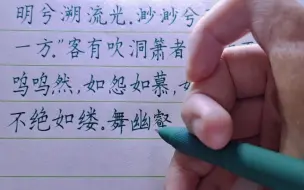 明兮溯流光.渺渺兮
一方."客有吹洞箫者
呜呜然,如怨如慕,
不绝如缕.舞幽壑